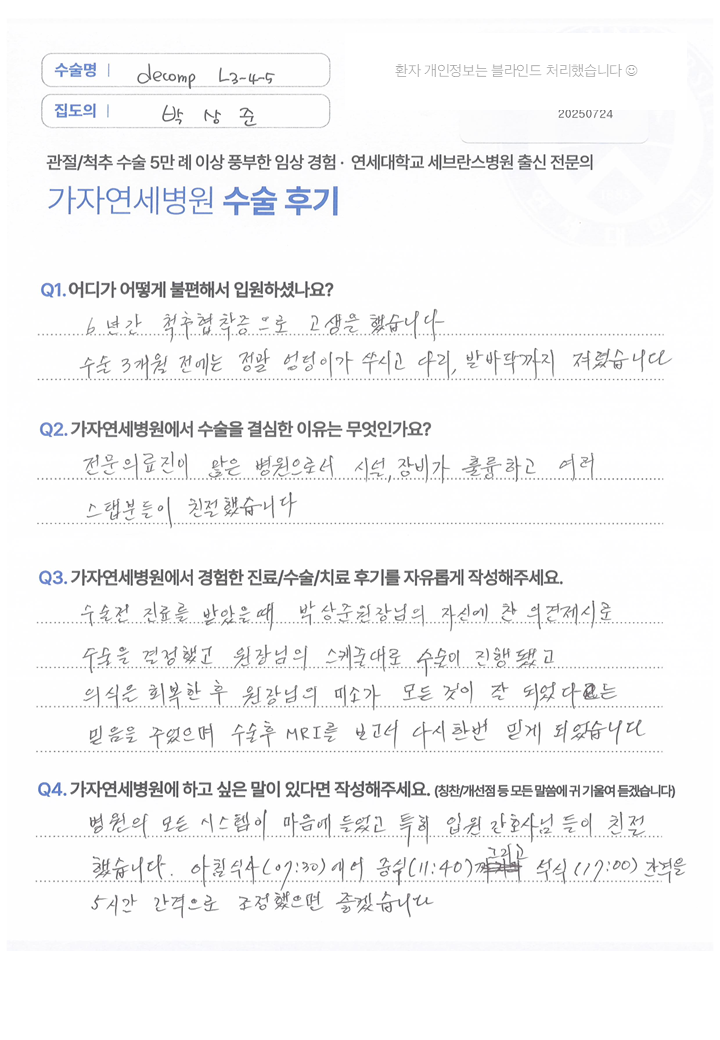 수술명 | decomp L3-4-5
환자 개인정보는 블라인드 처리했습니다 ☺
집도의 | 박 상 준
20250724
관절/척추 수술 5만 례 이상 풍부한 임상 경험 · 연세대학교 세브란스병원 출신 전문의
가자연세병원 수술 후기
Q1. 어디가 어떻게 불편해서 입원하셨나요?
6년간 척추협착증으로 고생을 했습니다
수술 3개월 전에는 정말 엉덩이가 쑤시고 다리, 발바닥까지 저렸습니다
Q2. 가자연세병원에서 수술을 결심한 이유는 무엇인가요?
전문의료진이 많은 병원으로서 시설, 장비가 훌륭하고 여러
스탭분들이 친절했습니다
Q3. 가자연세병원에서 경험한 진료/수술/치료 후기를 자유롭게 작성해주세요.
수술전 진료를 받았을때 박상준원장님의 자신에 찬 의견제시로
수술을 결정했고 원장님의 스케줄대로 수술이 진행됐고
의식은 회복한 후 원장님의 미소가 모든 것이 잘 되었다는
믿음을 주었으며 수술후 MRI를 보고서 다시한번 믿게 되었습니다
Q4. 가자연세병원에 하고 싶은 말이 있다면 작성해주세요. (칭찬/개선점 등 모든 말씀에 귀 기울여 듣겠습니다)
병원의 모든 시스템이 마음에 들었고 특히 입원 간호사님 들이 친절
했습니다. 아침식사(07:30)에서 중식(11:40) 그리고 석식(17:00) 간격을
5시간 간격으로 조정했으면 좋겠습니다